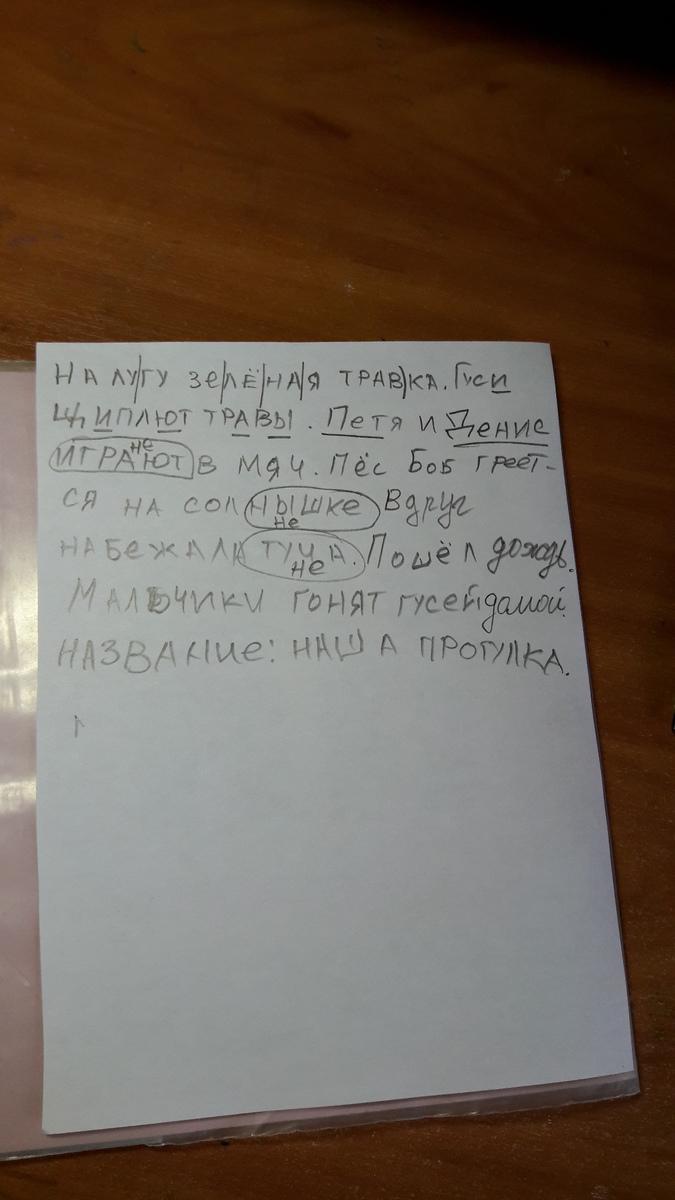 НА ЛУ/ГУ ЗеЛ/Ё/НА/Я ТРАВ/КА. Гуси
ЩИПЛЮТ ТРАВЫ. Петя и Денис
ИГРАЮТ не В МЯЧ. Пёс Боб греет-
ся НА СОЛНЫШКе не Вдруг
НАБЕЖАЛА ТУЧА. не Пошёл дождь.
МАЛЬЧИКИ ГОНЯТ ГУСЕЙ дамой.
НАЗВАНИе: НАША ПРОГУЛКА.